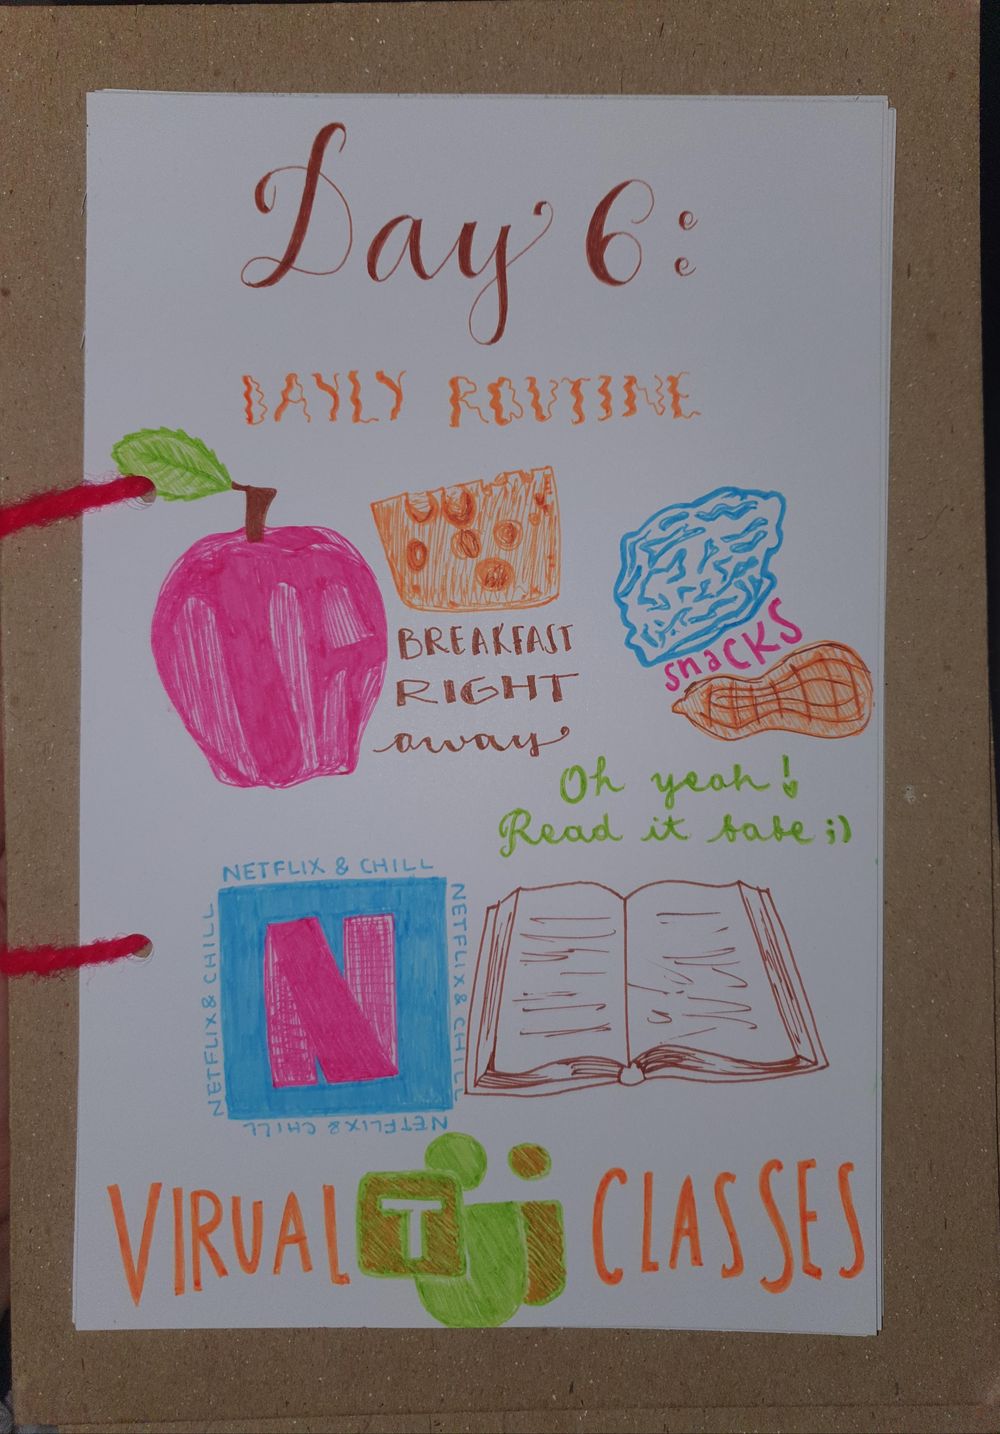 Day 6:
DAYLY ROUTINE
BREAKFAST
RIGHT
away
snaCKS
Oh yeah!
Read it babe ;)
NETFLIX & CHILL
NETFLIX & CHILL
NETFLIX & CHILL
NETFLIX & CHILL
N
VIRUAL T CLASSES